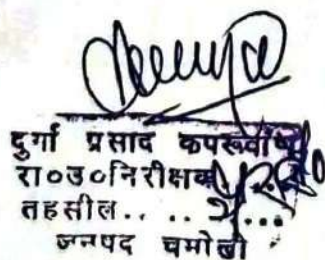 दुर्गा प्रसाद कपरूवाण
रा०उ०निरीक्षक
तहसील.. .. ...
जनपद चमोली